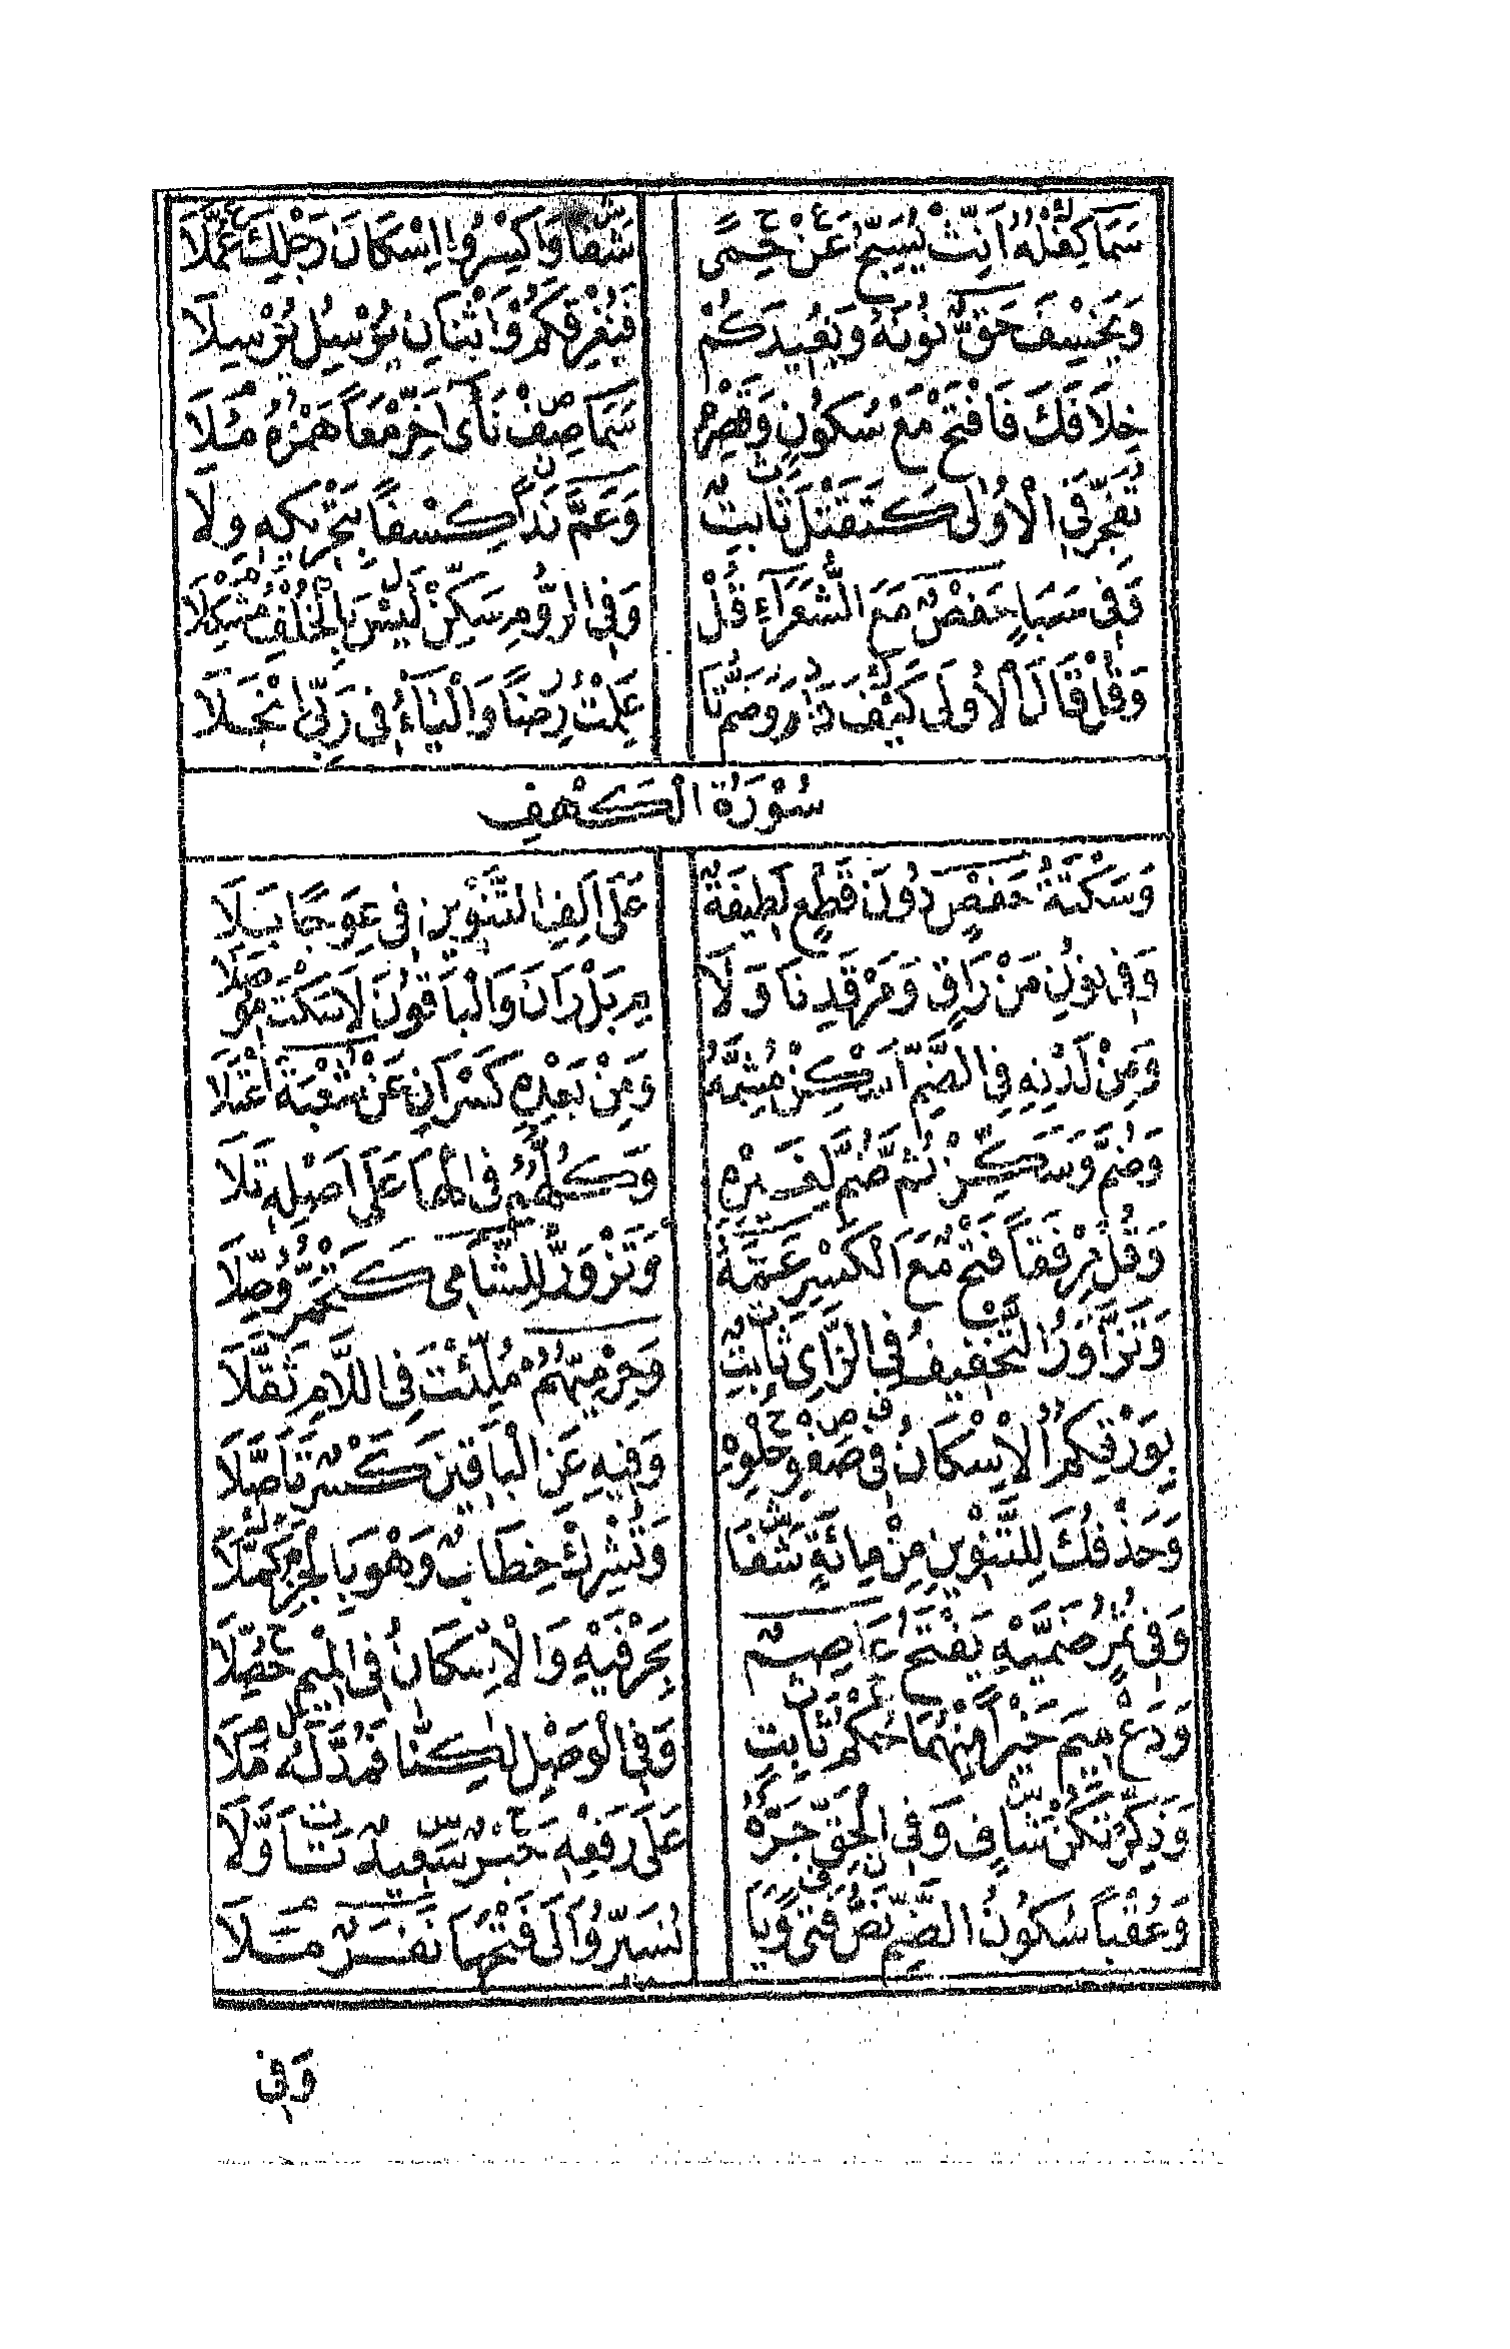 سَمَا كِفْلُهُ أَنِّثْ يُسَبِّحُ عَنْ حِمًى شَفَا وَاكْسِرُوا إِسْكَانَ رَجْلِكَ عُمَّلَا
وَيَخْسِفَ حَقٌّ نُونُهُ وَيُعِيدَكُمْ فَيُغْرِقَكُمْ وَاثْنَانِ يُرْسِلَ يُرْسِلَا
خِلَافَكَ فَافْتَحْ مَعْ سُكُونٍ وَقَصْرِهِ سَمَا صِفْ نَأَى أَخِّرْ مَعًا هَمْزَهُ مُلَا
تُفَجِّرَ فِي الْأُولَى كَتَقْتُلَ ثَابِتٌ وَعَمَّ نَدًا كِسْفًا بِتَحْرِيكِهِ وَلَا
وَفِي سَبَإٍ حَفْصٌ مَعَ الشُّعَرَآءِ قُلْ وَفِي الرُّومِ سَكِّنْ لَيْسَ بِالْخُلْفِ مُشْكِلَا
وَقُلْ قَالَ الْأُولَى كَيْفَ دَارَ وَضُمَّ تَا عَلِمْتَ رِضًا وَالْيَاءُ فِي رَبِّي انْجَلَا
سُوْرَةُ الْكَهْفِ
وَسَكْتَةُ حَفْصٍ دُونَ قَطْعٍ لَطِيفَةٌ عَلَى أَلِفِ التَّنْوِينِ فِي عِوَجًا بَلَا
وَفِي نُونِ مَنْ رَاقٍ وَمَرْقَدِنَا وَلَا مِ بَلْ رَانَ وَالْبَاقُونَ لَا سَكْتَ مُوصَلَا
وَمِنْ لَدْنِهِ فِي الضَّمِّ أَسْكِنْ مُشِمَّهُ وَمِنْ بَعْدِهِ كَسْرَانِ عَنْ شُعْبَةَ اعْتَلَا
وَضُمَّ وَسَكِّنْ ثُمَّ ضُمَّ لِغَيْرِهِ وَكُلُّهُمُ فِي الْهَا عَلَى أَصْلِهِ تَلَا
وَقُلْ مِرْفَقًا فَتْحٌ مَعَ الْكَسْرِ عَمَّهُ وَتَزْوَرُّ لِلشَّامِي كَتَحْمَرُّ وُصِّلَا
وَتَزَّاوَرُ التَّخْفِيفُ فِي الزَّايِ ثَابِتٌ وَحِرْمِيُّهُمْ مُلِّئْتَ فِي اللَّامِ ثَقَّلَا
بِوَرْقِكُمُ الْإِسْكَانُ فِي صَفْوِ حُلْوِهِ وَفِيهِ عَنِ الْبَاقِينَ كَسْرٌ تَأَصَّلَا
وَحَذْفُكَ لِلتَّنْوِينِ مِنْ مِائَةٍ شَفَا وَتُشْرِكْ خِطَابٌ وَهْوَ بِالْجَزْمِ كُمِّلَا
وَفِي ثُمُرٍ ضَمَّيْهِ يَفْتَحُ عَاصِمٌ بِحَرْفَيْهِ وَالْإِسْكَانُ فِي الْمِيمِ حُصِّلَا
وَدَعْ مِيمَ خَيْرًا مِنْهُمَا حُكْمُ ثَابِتٍ وَفِي الْوَصْلِ لَكِنَّا فَمُدَّ لَهُ مُلَا
وَذَكِّرْ تَكُنْ شَافٍ وَفِي الْحَقِّ جَرُّهُ عَلَى رَفْعِهِ حَبْرٌ سَعِيدٌ تَأَوَّلَا
وَعُقْبًا سُكُونُ الضَّمِّ نَصُّ فَتًى وَيَا نُسَيِّرُ وَالَى فَتْحَهَا نَفَرٌ مَلَا
وَفِي